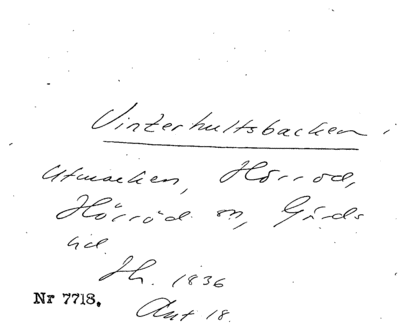 Vinterhultsbacken i
Utmarken, Hörröd,
Hörröd sn, Gärds
hd.
Jh. 1836
Akt 18.
Nr 7718.